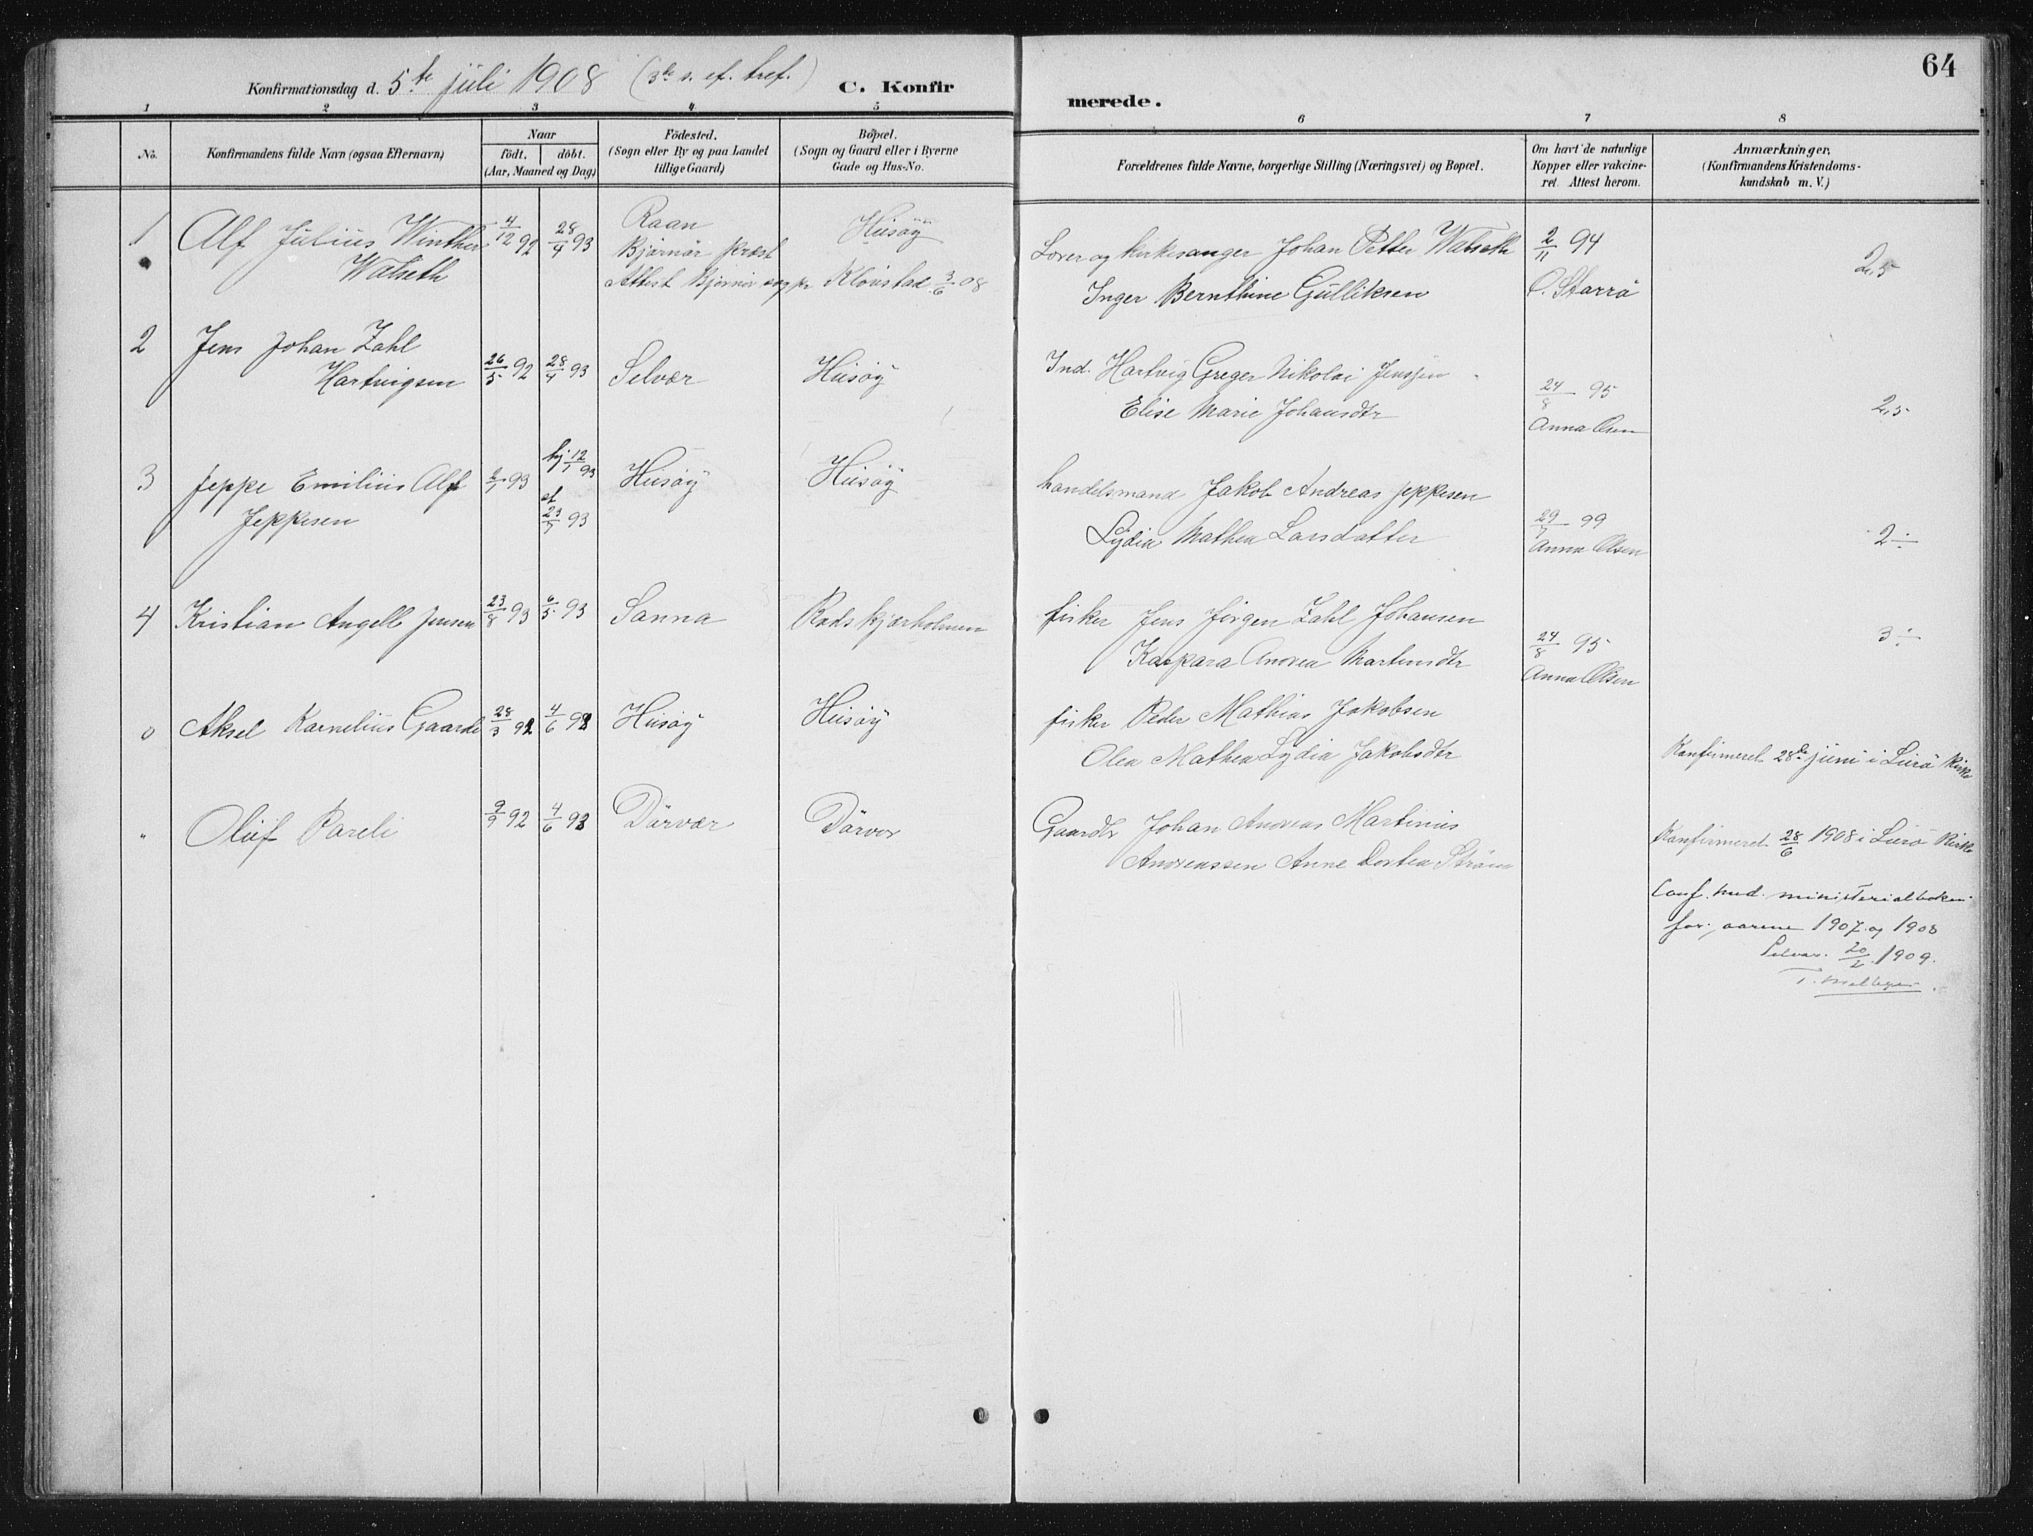 64
Konfirmationsdag d. 5te juli 1908 (3de s. ef. tref.)
C. Konfirmerede.
1 2 3 4 5 6 7 8
No.
Konfirmandens fulde Navn (ogsaa Efternavn)
Naar
födt. döbt.
(Aar, Maaned og Dag)
Födested.
(Sogn eller By og paa Landet
tillige Gaard)
Bopæl.
(Sogn og Gaard eller i Byerne
Gade og Hus-No.
Forældrenes fulde Navne, borgerlige Stilling (Næringsvei) og Bopæl.
Om havt de naturlige
Kopper eller vakcine-
ret Attest herom.
Anmærkninger,
(Konfirmandens Kristendoms-
kundskab m. V.)
1 Alf Julius Winther 4/12 92 28/4 93 Raan Husöy
Walseth Bjørnør præst
Attest Bjørnør sogpr Kløvstad 3/6 08
Lærer og kirkesanger Johan Petter Walseth 2/11 94
Inger Bernthine Gulliksen O. Starrö 2,5
2 Jens Johan Zahl
Hartvigsen 26/5 92 28/4 93 Selvær Husöy
Ind. Hartvig Greger Nikolai Jenssen 24/8 95
Elise Marie Johansdtr Anna Olsen 2,5
3 Jeppe Emilius Alf 2/1 93 hj 12/1 93 Husöy Husöy
Jeppesen st 23/7 93
handelsmand Jakob Andreas Jeppesen 29/7 99
Lydia Mathea Larsdatter Anna Olsen 2÷
4 Kristian Angell Jensen 23/8 93 6/5 93 Sanna Rødskjærholmen
fisker Jens Jörgen Zahl Johansen 24/8 95
Kaspara Anorea Martensdtr Anna Olsen 3÷
0 Aksel Kornelius Gaarde 28/3 92 4/6 92 Husöy Husöy
fisker Peder Mathias Jakobsen
Olea Mathea Lydia Jakobsdtr
Konfirmeret 28de juni i Lurö Kirke
" Oluf Pareli 9/9 92 4/6 93 Dörvær Dörvær
Gaardbr Johan Andreas Martinius
Andreassen Anne Dortea Ström
Konfirmeret 28/6 1908 i Lurö Kirke
Conf. med. ministerialboken
for aarene 1907 og 1908
Selvær 20/2 1909.